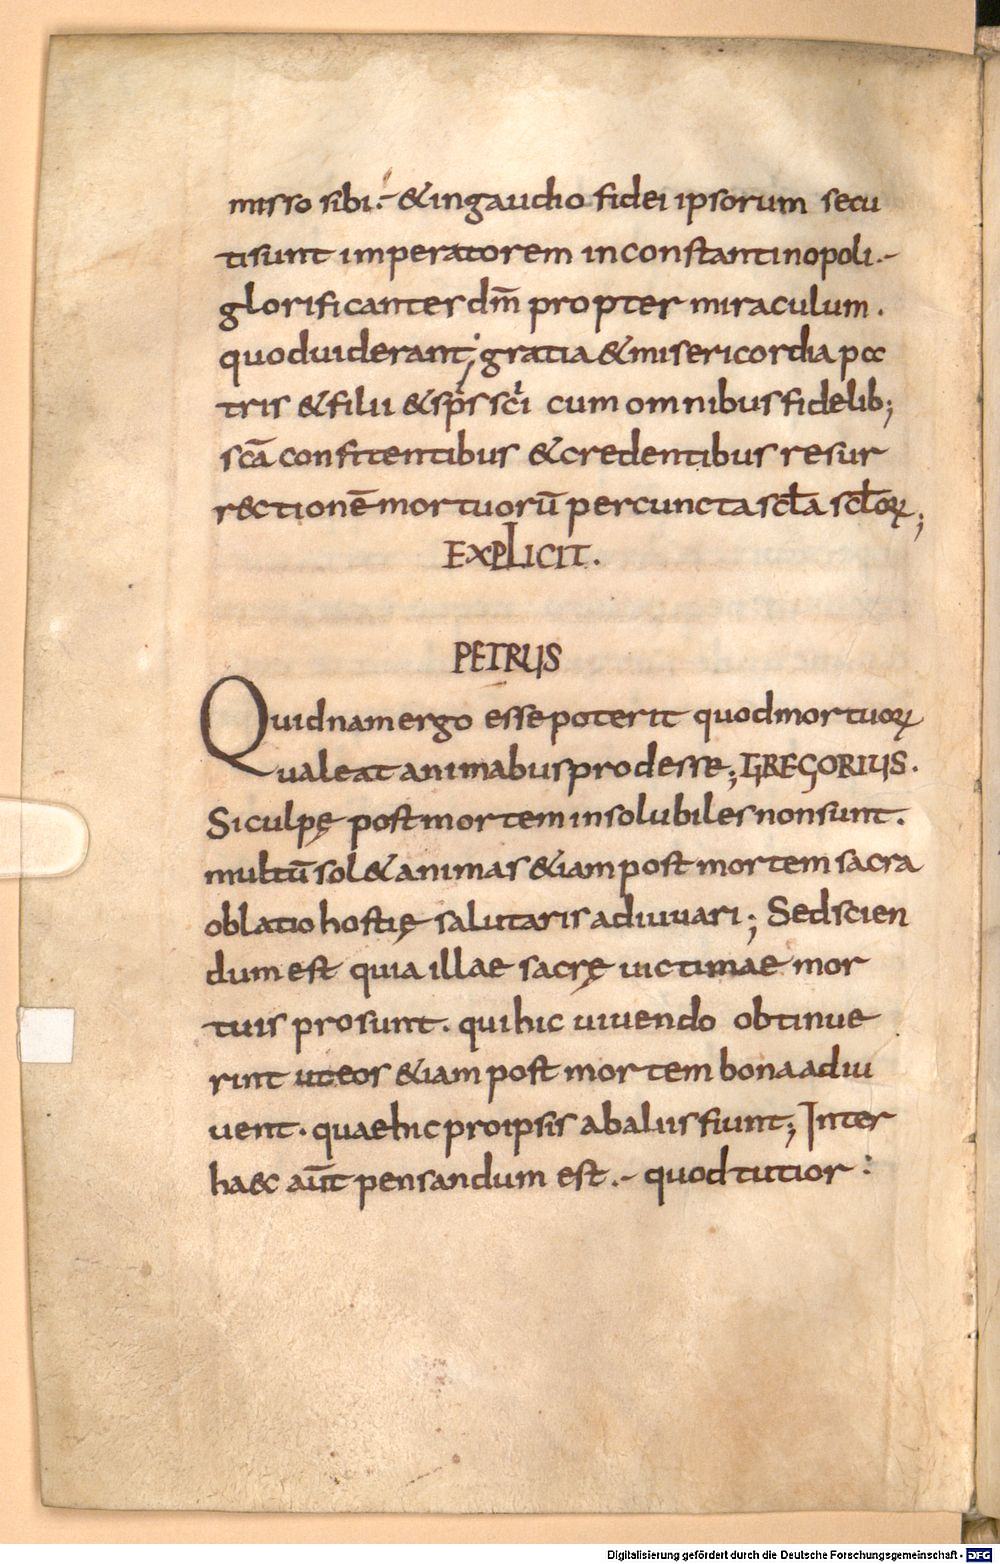 misso sibi.- & in gaudio fidei ipsorum secu
ti sunt imperatorem in constantinopoli.-
glorificanter dm̄ propter miraculum.
quod uiderant; gratia & misericordia pa
tris & filii & sp̄s sc̄i cum omnibus fidelib;
sc̄a confitentibus & credentibus resur
rectionē mortuorū per cuncta scl̄a scl̄oꝝ;
EXPLICIT.
PETRUS
Quidnam ergo esse poterit quod mortuoꝝ
ualeat animabus prodesse; GREGORIUS.
Si culpę post mortem insolubiles non sunt.
multū sol& animas &iam post mortem sacra
oblatio hostię salutaris adiuuari; Sed scien
dum est quia illae sacrę uictimae mor
tuis prosunt. qui hic uiuendo obtinue
rint ut eos &iam post mortem bona adiu
uent. quae hic pro ipsis ab aliis fiunt; Inter
haec aūt pensandum est.- quod tutior :
Digitalisierung gefördert durch die Deutsche Forschungsgemeinschaft - DFG